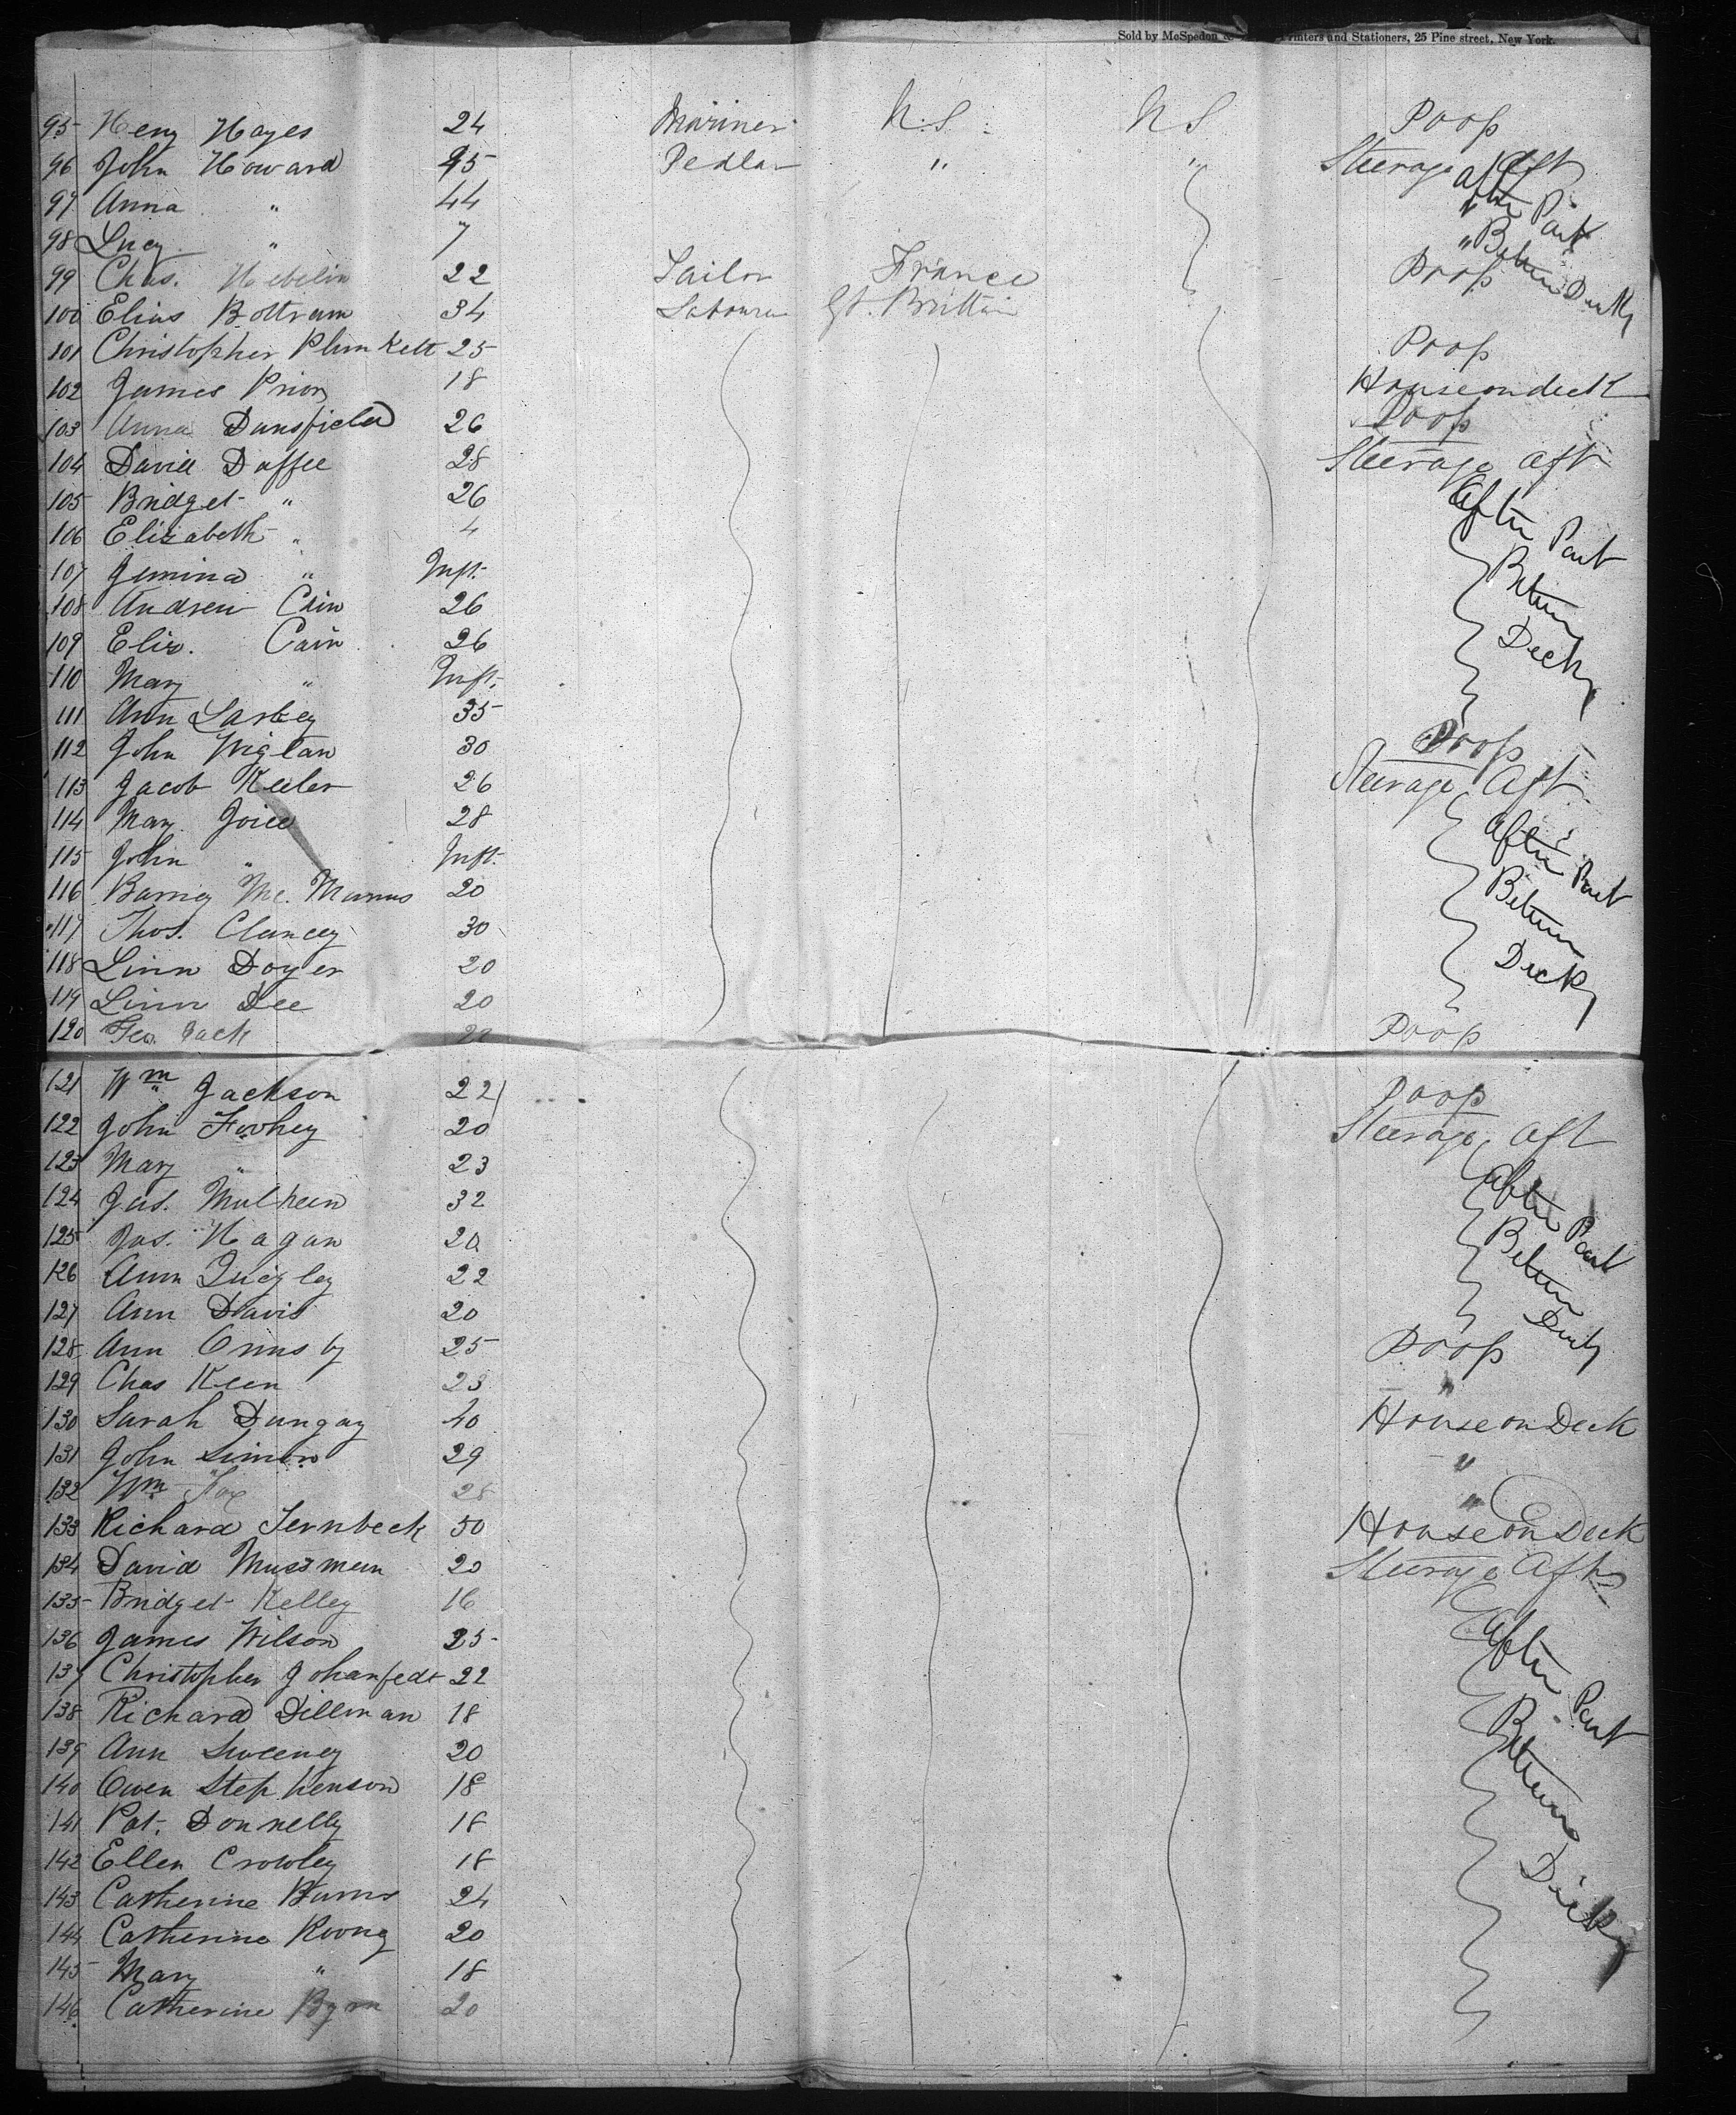 Sold by McSpedon & Printers and Stationers, 25 Pine street, New York.
95 Heny Hayes 24 Mariner U.S. U S Poop
96 John Howard 45 Pedlar " " Steerage Aft
97 Anna " 44 " After Part
98 Lucy " 7 " Between Decks
99 Chas. Hebelin 22 Sailor France Poop
100 Elias Bottram 34 Labourer Gt. Brittain
101 Christopher Plunkett 25 Poop
102 James Prior 18 House on deck
103 Anna Dunsfield 26 Poop
104 David Duffee 28 Steerage aft
105 Bridget " 26 After Part
106 Elizabeth " 4
107 Jemina " Inft. Between
108 Andrew Cain 26
109 Eliz. Cain 26 Decks
110 Mary " Inft.
111 Ann Larkey 35
112 John Wigtan 30 Poop
113 Jacob Keeler 26 Steerage Aft
114 Mary Joice 28 After Part
115 John " Inft.
116 Barney Mc. Manus 20 Between
117 Thos. Clancey 30
118 Linn Doyer 20 Decks
119 Linn Dee 20
120 Geo. Jack 22 Poop
121 Wm Jackson 22 Poop
122 John Foohey 20 Steerage Aft
123 Mary " 23
124 Jas. Mulheen 32 After Part
125 Jas. Hagan 20
126 Ann Quigley 22 Between
127 Ann Davis 20 Decks
128 Ann Ormsby 25 Poop
129 Chas Keen 23 "
130 Sarah Dungay 40 House on Deck
131 John Simon 29 "
132 Wm Fox 28 "
133 Richard Fernbeck 50 House on Deck
134 David Mussman 20 Steerage Aft
135 Bridget Kelley 16
136 James Wilson 25 After Part
137 Christopher Johanfedt 22
138 Richard Dillman 18 Between
139 Ann Sweeney 20
140 Owen Stephenson 18
141 Pat. Donnelly 18
142 Ellen Crowley 18 Decks
143 Catherine Burns 24
144 Catherine Roong 20
145 Mary " 18
146 Catherine Byrn 20